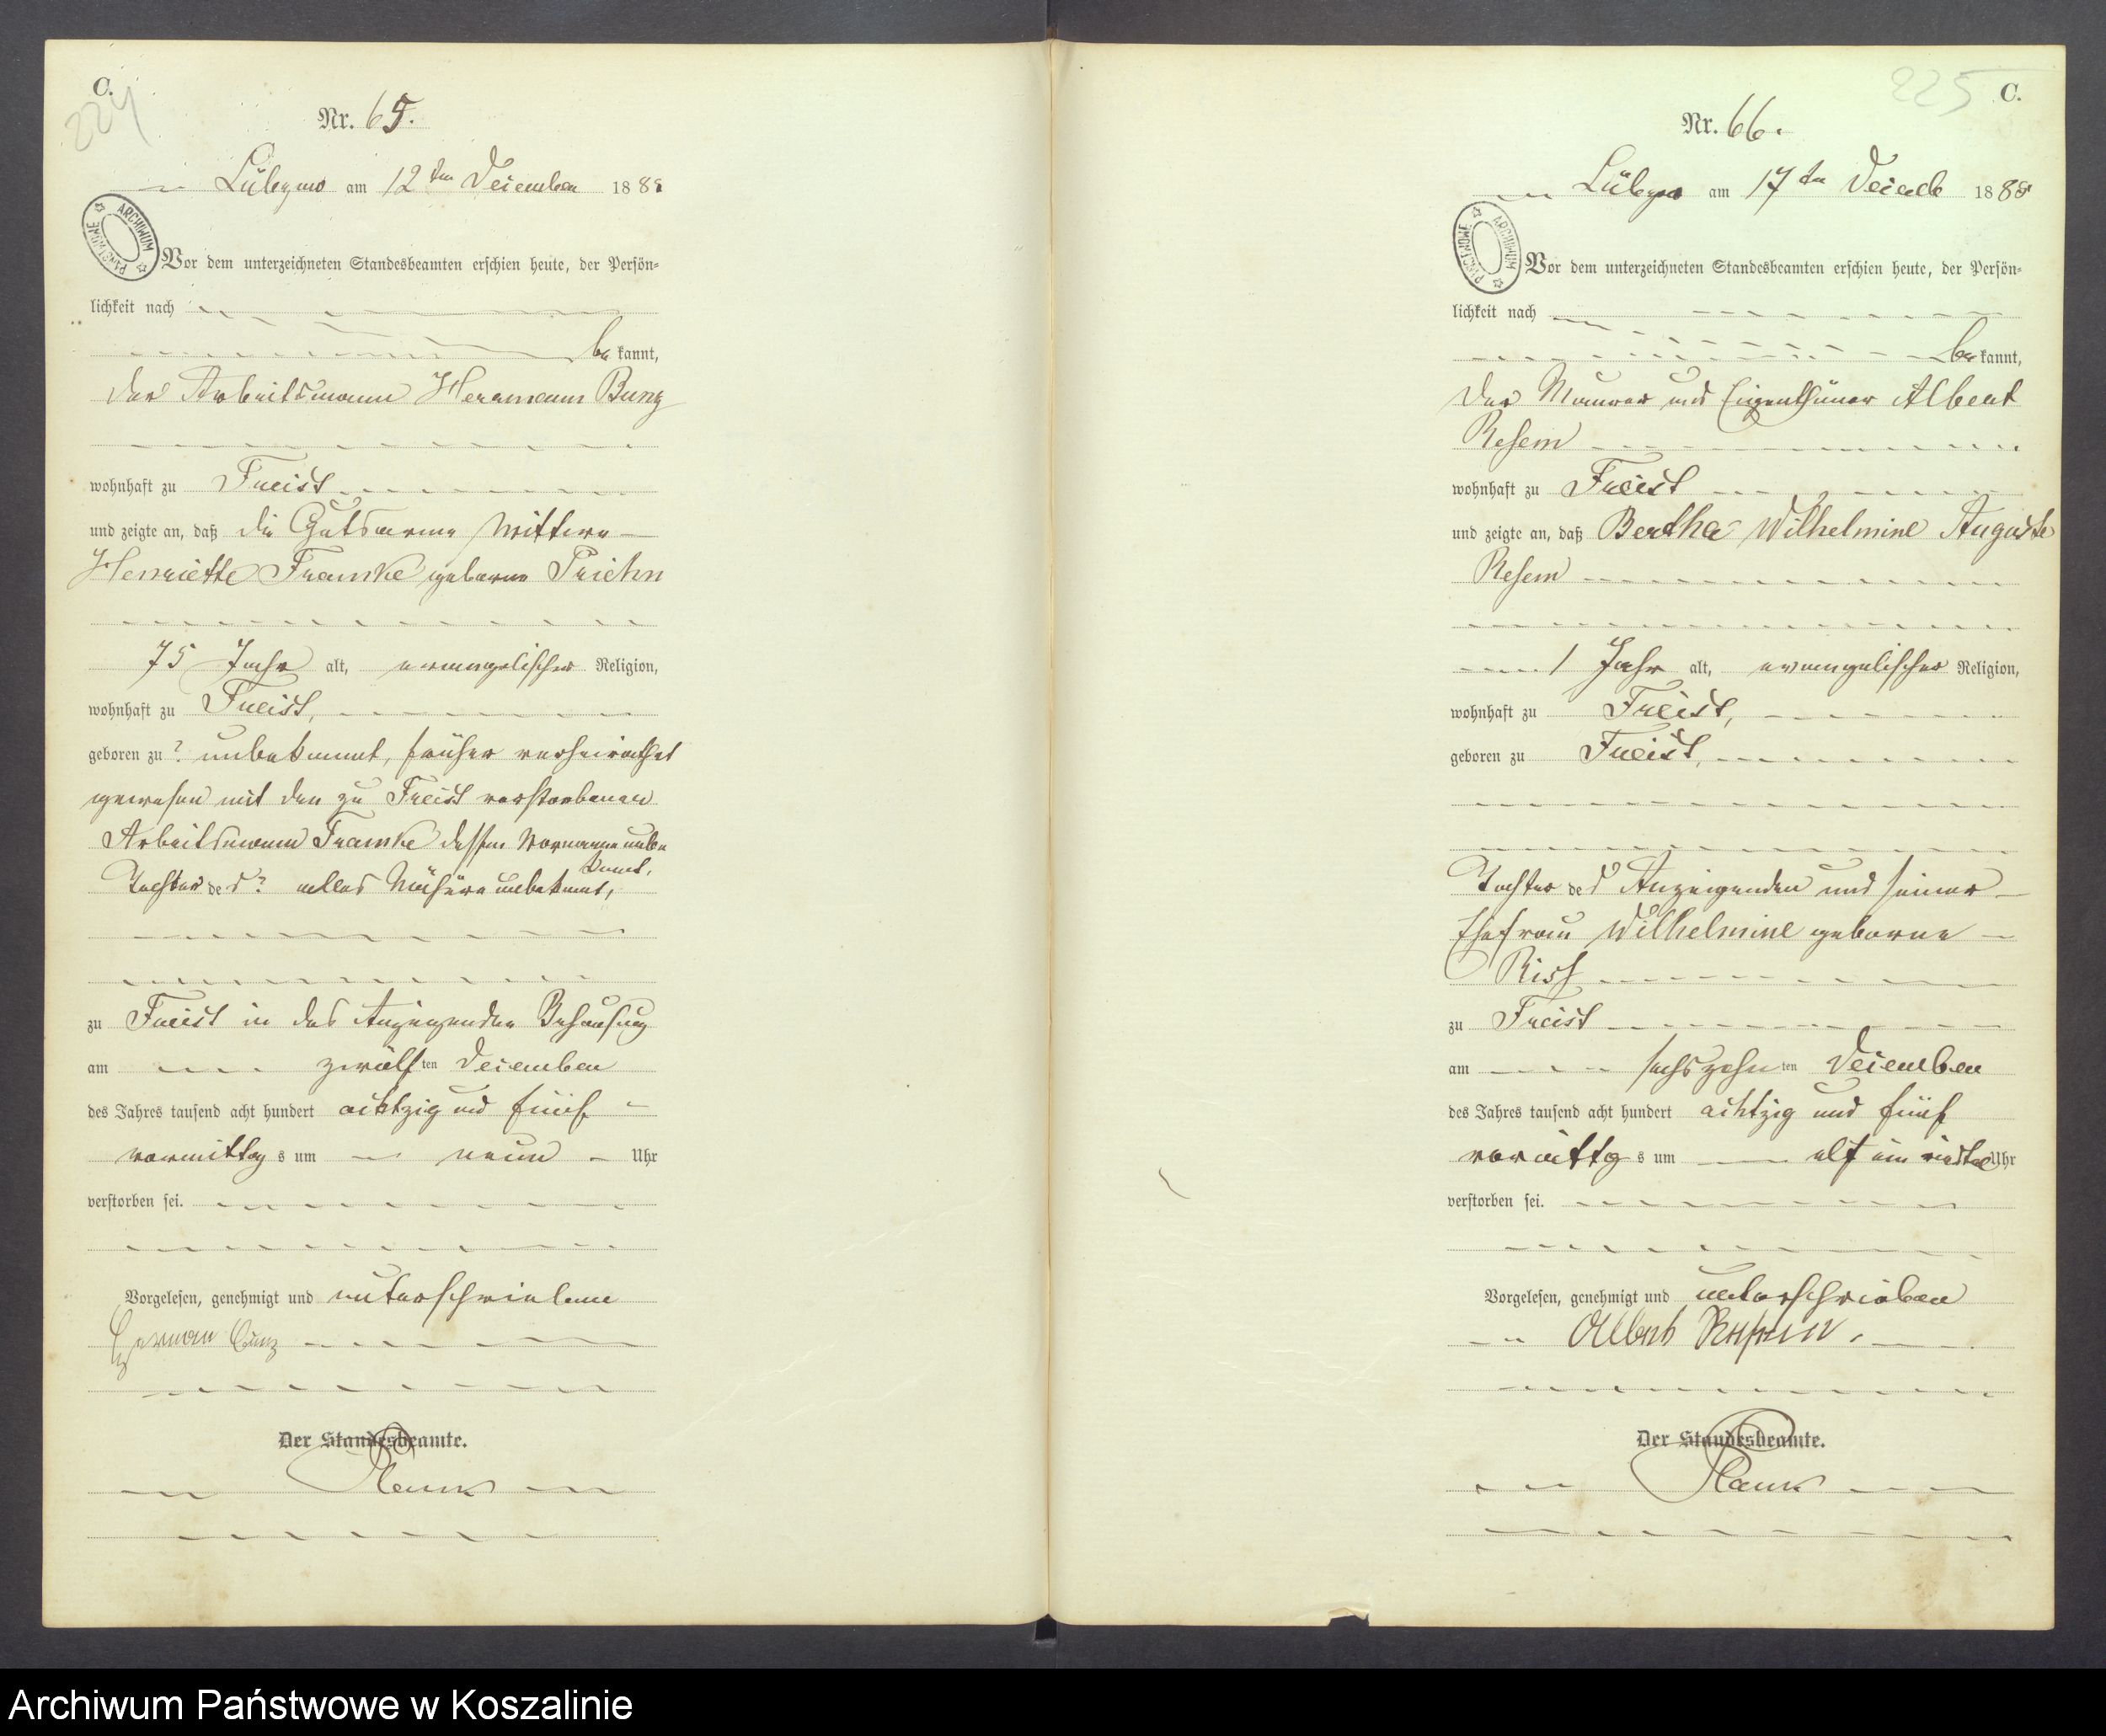 C.
224
Nr. 65.
Lübzow am 12ten December 1885
ARCHIWUM PAŃSTWOWE
Vor dem unterzeichneten Standesbeamten erschien heute, der Persön-
lichkeit nach
bekannt,
der Arbeitsmann Hermann Bunz
wohnhaft zu Freist
und zeigte an, daß die Gutsarme Wittwe
Henriette Framke geborne Priehn
75 Jahr alt, evangelischer Religion,
wohnhaft zu Freist,
geboren zu ? unbekannt, früher verheirathet
gewesen mit den zu Freist verstorbenen
Arbeitsmann Framke dessen Vorname unbe
kannt,
Tochter des ? alles Nähere unbekannt,
zu Freist in des Anzeigenden Behausung
am zwölften December
des Jahres tausend acht hundert achtzig und fünf
vormittags um neun Uhr
verstorben sei.
Vorgelesen, genehmigt und unterschrieben
Herman Bunz
Der Standesbeamte.
225
C.
Nr. 66.
Lübzow am 17ten Decemb 1885
ARCHIWUM PAŃSTWOWE
Vor dem unterzeichneten Standesbeamten erschien heute, der Persön-
lichkeit nach
bekannt,
der Maurer und Eigenthümer Albert
Resem
wohnhaft zu Freist
und zeigte an, daß Bertha Wilhelmine Auguste
Resem
1 Jahr alt, evangelischer Religion,
wohnhaft zu Freist,
geboren zu Freist,
Tochter des Anzeigenden und seiner
Ehefrau Wilhelmine geborne
zu Freist
am sechszehnten December
des Jahres tausend acht hundert achtzig und fünf
vormittags um elf ein viertel Uhr
verstorben sei.
Vorgelesen, genehmigt und unterschrieben
Albert Resem.
Der Standesbeamte.
Archiwum Państwowe w Koszalinie